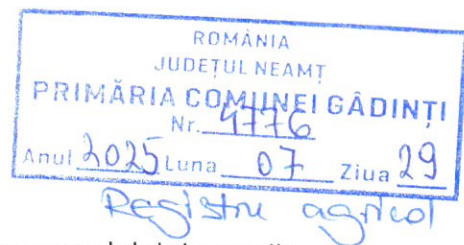 ROMÂNIA
JUDEȚUL NEAMȚ
PRIMĂRIA COMUNEI GÂDINȚI
Nr. 4776
Anul 2025 Luna 07 Ziua 29
Registru agricol